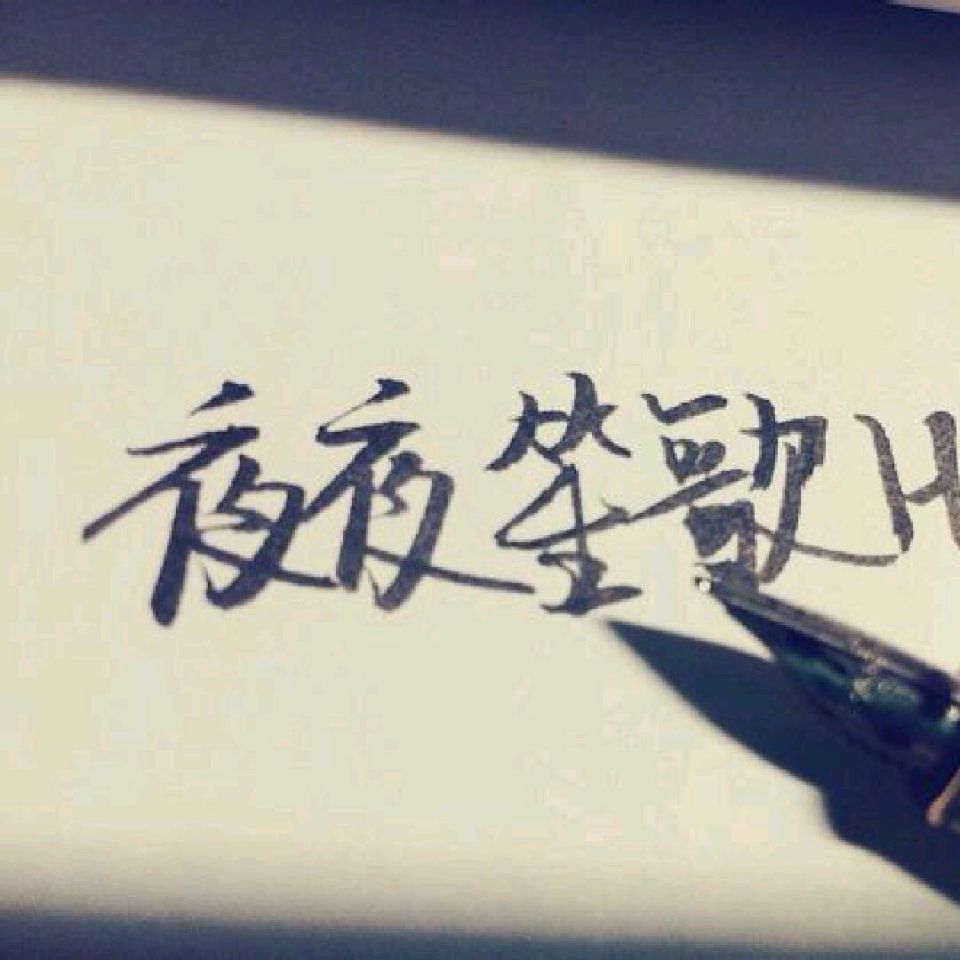 夜夜笙歌